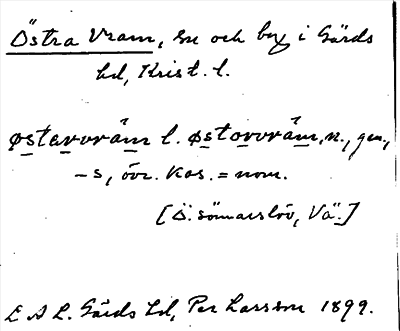 Östra Vram, sn och by i Gärds
hd, Krist. l.
østarvrám l. østorvrám, n., gen.,
-s, övr. kas. = nom.
[Ö. Sönnarslöv, Vä.]
E A L. Gärds hd, Per Larsson 1899.